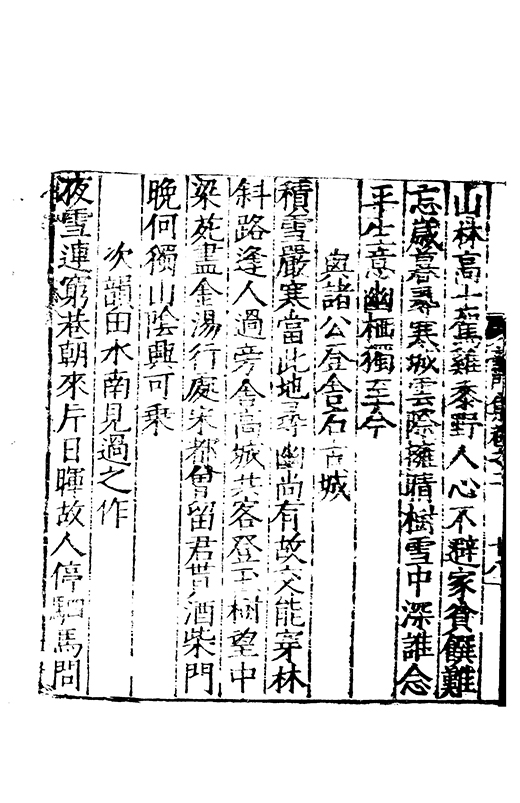 山林高士駕雞黍野人心不避家貧饌難
忘歲暮尋寒城雲際擁晴樹雪中深誰念
平生意幽栖獨至今
與諸公登舍古城
積雪嚴寒當此地尋幽尚有故交能穿林
斜路逢人過旁舍高城共客登玉樹望中
梁苑盡金湯行處宋都曾留君貰酒柴門
晚何獨山陰興可乘
次韻田水南見過之作
夜雪連窮巷朝來片日暉故人停駟馬問